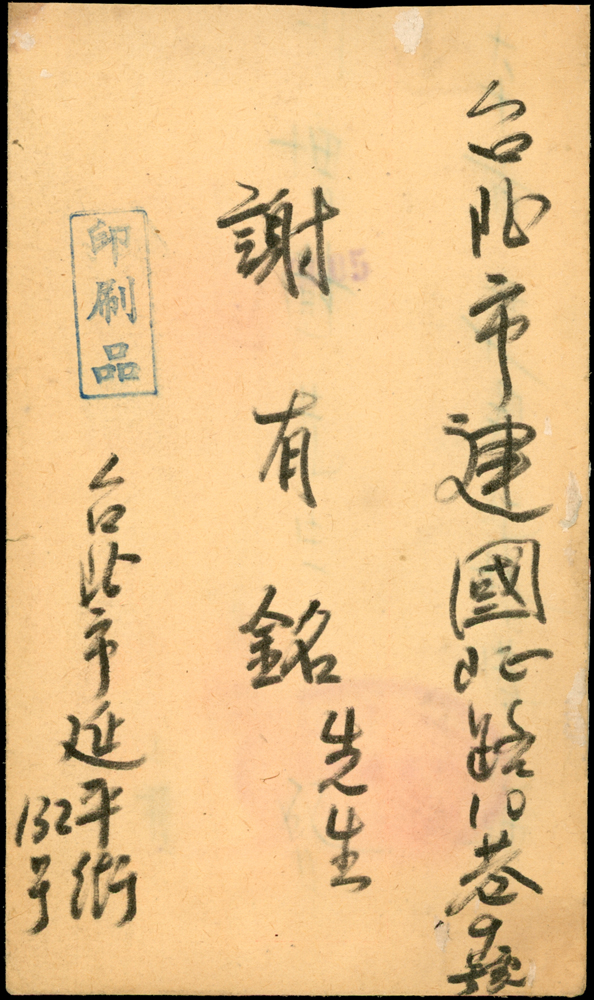 台北市建國北路10巷9號
謝有銘先生
印刷品
台北市延平街
132号